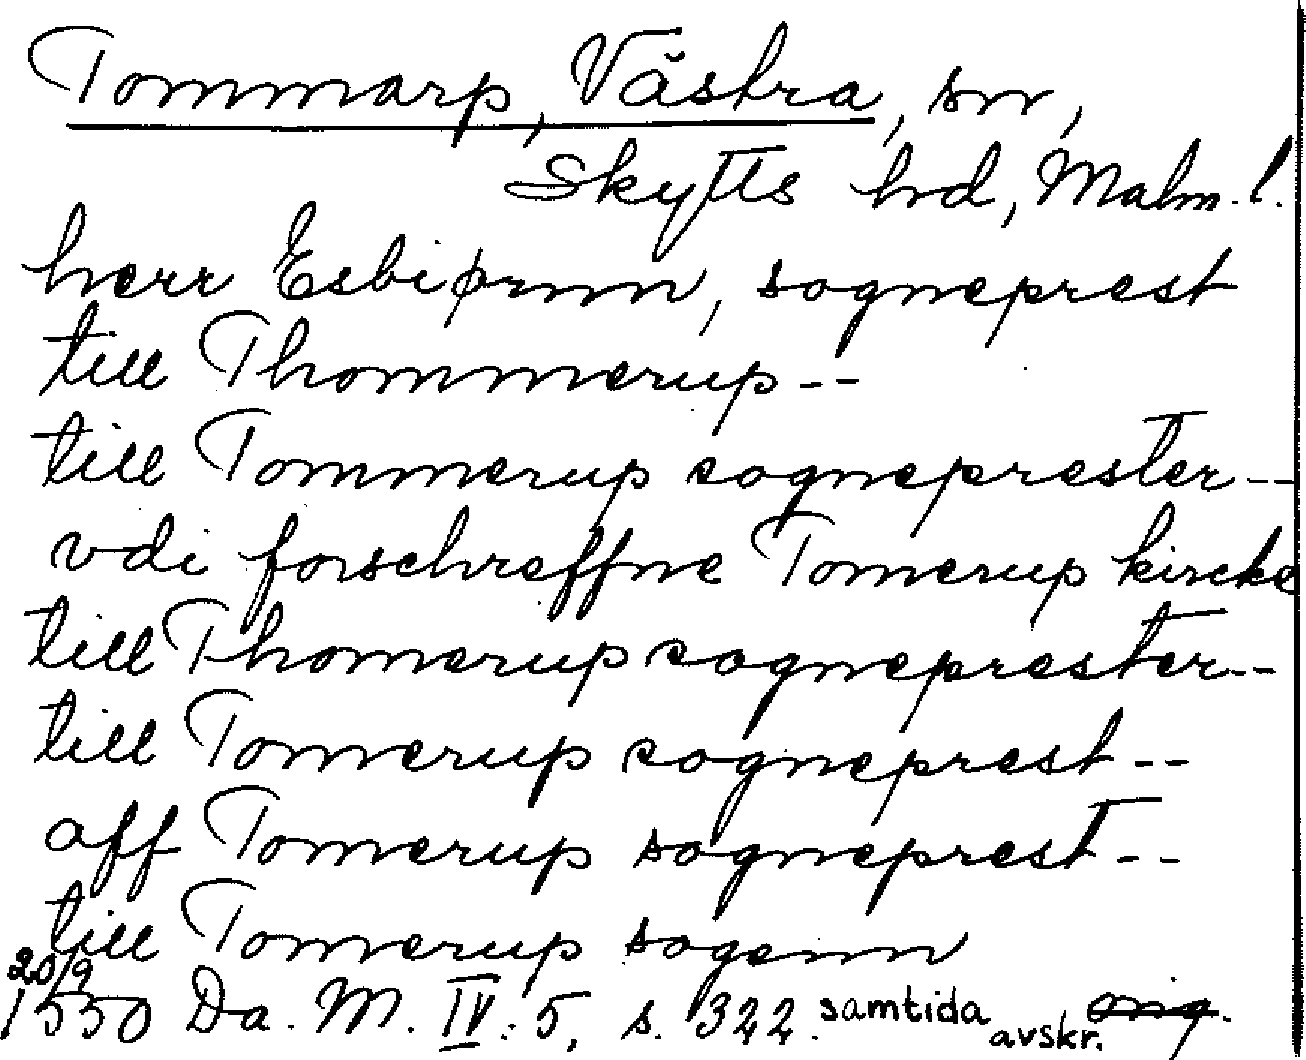 Tommarp, Västra, sn,
Skytts hd, Malm. l.
herr Esbiørnn, sogneprest
till Thommerup --
till Tommerup sogneprester --
vdi forschreffne Tomerup kircke
till Thomerup sogneprester --
till Tomerup sogneprest --
aff Tomerup sogneprest --
till Tomerup sogenn
20/9
1550 Da. M. IV: 5, s. 322. samtida avskr. orig.